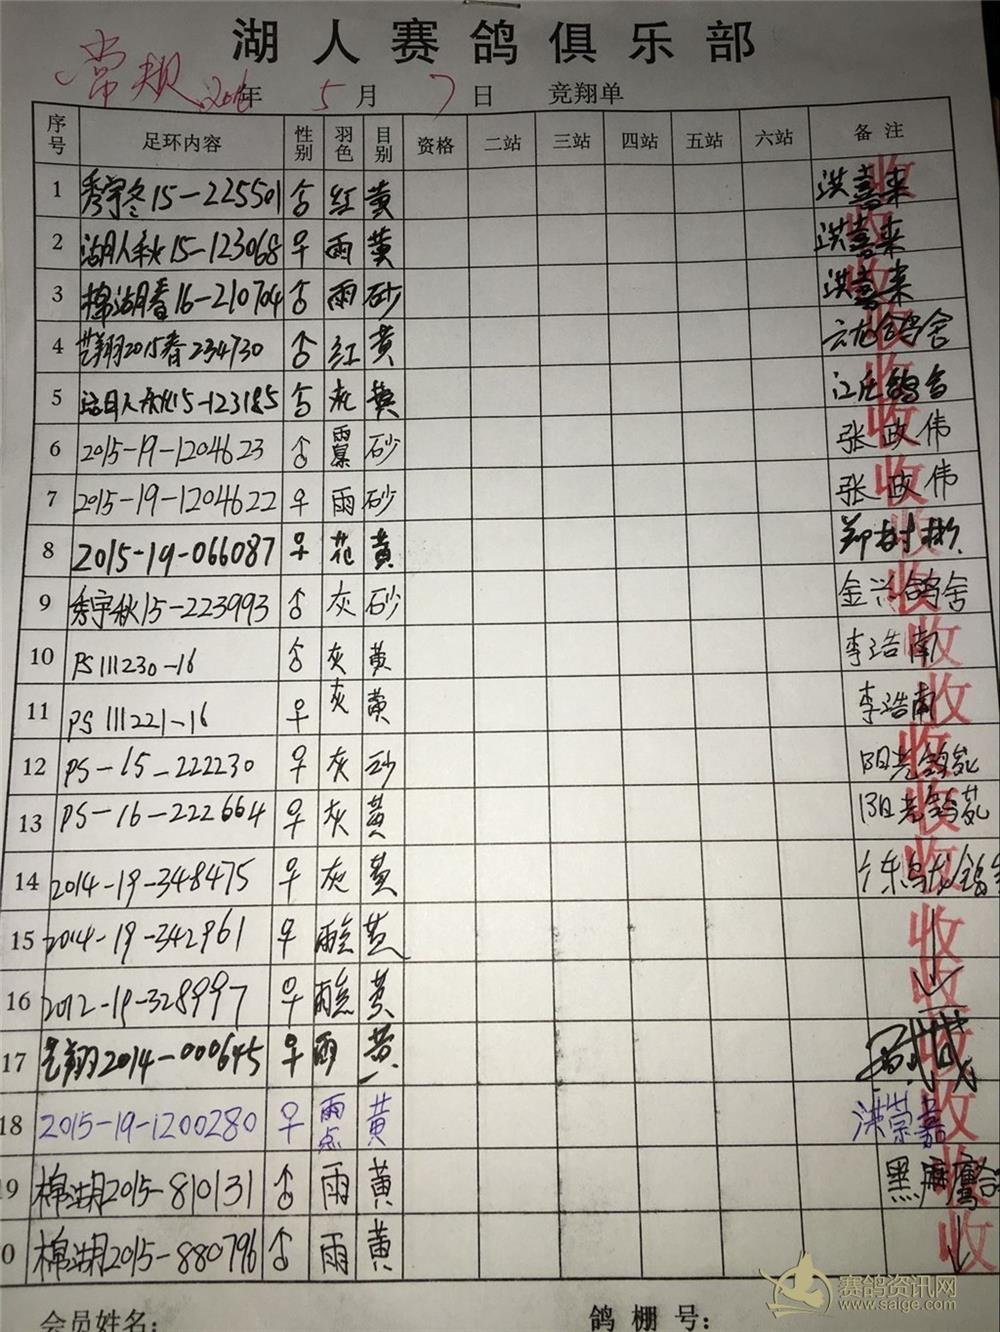 湖人赛鸽俱乐部
常规 年 5月 7日 竞翔单
序号 足环内容 性别 羽色 目别 资格 二站 三站 四站 五站 六站 备注
1 秀宇冬15-225501 ♂ 红 黄 洪喜来 收
2 湖人秋15-123068 ♀ 雨 黄 洪喜来 收
3 棉湖春16-210704 ♂ 雨 砂 洪喜来 收
4 艺翔2015春234730 ♂ 红 黄 云龙鸽舍 收
5 湖人秋15-123185 ♂ 灰 黄 江氏鸽舍 收
6 2015-19-1204623 ♂ 砂 张政伟 收
7 2015-19-1204622 ♀ 雨 砂 张政伟 收
8 2015-19-066087 ♀ 花 黄 郑树彬 收
9 秀宇秋15-223993 ♂ 灰 砂 金兴鸽舍 收
10 PS 111230-16 ♂ 灰 黄 李浩南 收
11 PS 111221-16 ♀ 灰 黄 李浩南 收
12 PS-15-222230 ♀ 灰 砂 阳光鸽苑 收
13 PS-16-222664 ♀ 灰 黄 阳光鸽苑 收
14 2014-19-348475 ♀ 灰 黄 收
15 2014-19-342961 ♀ 雨点 黄 收
16 2012-19-328997 ♀ 雨点 黄 收
17 艺翔2014-000645 ♀ 雨 黄 收
18 2015-19-1200280 ♀ 雨点 黄 洪崇嘉 收
9 棉湖2015-810131 ♂ 雨 黄 黑 收
0 棉湖2015-880796 ♂ 雨 黄 收
会员姓名： 鸽棚号：
赛鸽资讯网
www.saige.com